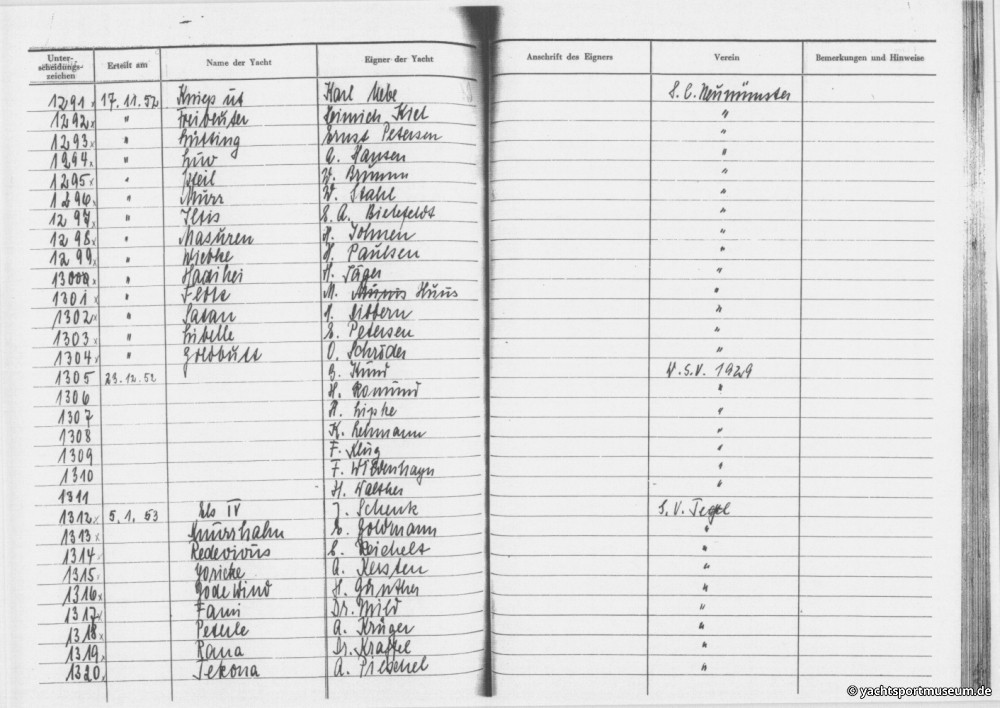 Unter-scheidungs-zeichen Erteilt am Name der Yacht Eigner der Yacht Anschrift des Eigners Verein Bemerkungen und Hinweise
1291 x 17.11.52 Kniep ut Karl S.C. Neumünster
1292 x " Freibeuter Heinrich Kiel "
1293 x " Lütting Ernst Petersen "
1294 x " Luv Hansen "
1295 x " W. Brumm "
1296 x " Murr W. Stahl "
1297 x " Iltis E. A. Bielefeldt "
1298 x " Masuren H. "
1299 x " Wiebke H. Paulsen "
1300 x " H. Jäger "
1301 x " M. Huus "
1302 x " Satan "
1303 x " Libelle E. Petersen "
1304 x " Goldbutt O. Schröder "
1305 23.12.52 W.S.V. 1929
1306 H. Romünd "
1307 H. Lipke "
1308 K. Lehmann "
1309 F. Klug "
1310 F. "
1311 H. Walther "
1312 x 5.1.53 IV J. Schenk S.V. Tegel
1313 x Knurrhahn Goldmann "
1314 x Redevivus E. Reichelt "
1315 x A. Kersten "
1316 x Gode Wind H. Günther "
1317 x Fami Dr. Wild "
1318 x Peterle A. Krüger "
1319 x Rana Dr. "
1320 x Tekona A. "
© yachtsportmuseum.de